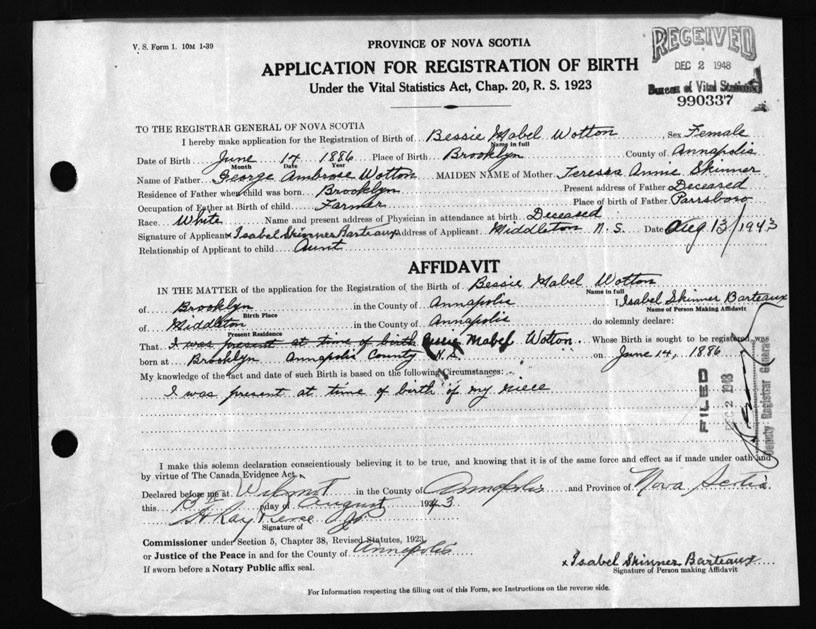 V. S. Form 1. 10M 1-39
PROVINCE OF NOVA SCOTIA
APPLICATION FOR REGISTRATION OF BIRTH
Under the Vital Statistics Act, Chap. 20, R. S. 1923
RECEIVED
DEC 2 1948
Bureau of Vital Statistics
990337
TO THE REGISTRAR GENERAL OF NOVA SCOTIA
I hereby make application for the Registration of Birth of Bessie Mabel Wotton Sex Female
Name in full
Date of Birth June 14 1886 Place of Birth Brooklyn County of Annapolis
Month Date Year
Name of Father George Ambrose Wotton MAIDEN NAME of Mother Teressa Annie Skinner
Residence of Father when child was born Brooklyn Present address of Father Deceased
Occupation of Father at Birth of child Farmer Place of birth of Father Parrsboro
Race White Name and present address of Physician in attendance at birth Deceased
Signature of Applicant x Isabel Skinner Barteaux Address of Applicant Middleton N.S. Date Aug 13/1943
Relationship of Applicant to child Aunt
AFFIDAVIT
IN THE MATTER of the application for the Registration of the Birth of Bessie Mabel Wotton
Name in full
of Brooklyn in the County of Annapolis I Isabel Skinner Barteaux
Birth Place Name of Person Making Affidavit
of Middleton in the County of Annapolis do solemnly declare:
Present Residence
That I was present at time of birth Bessie Mabel Wotton Whose Birth is sought to be registered was
born at Brooklyn Annapolis County N.S. on June 14, 1886
My knowledge of the fact and date of such Birth is based on the following Circumstances:
I was present at time of birth of my niece
FILED
DEC 2 1948
Deputy Registrar General
I make this solemn declaration conscientiously believing it to be true, and knowing that it is of the same force and effect as if made under oath and
by virtue of The Canada Evidence Act.
Declared before me at Wilmot in the County of Annapolis and Province of Nova Scotia
this 13th day of August 1943
Ray Pierce
Signature of
Commissioner under Section 5, Chapter 38, Revised Statutes, 1923,
or Justice of the Peace in and for the County of Annapolis
If sworn before a Notary Public affix seal.
x Isabel Skinner Barteaux
Signature of Person making Affidavit
For Information respecting the filling out of this Form, see Instructions on the reverse side.